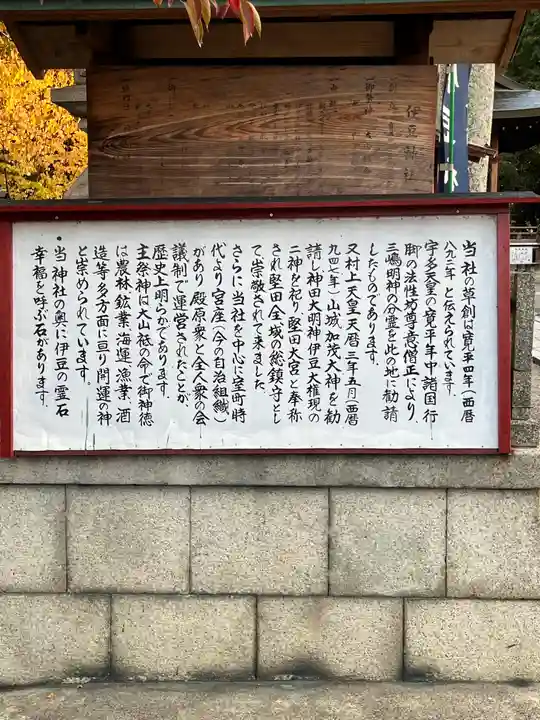 伊豆神社
当社の草創は寛平四年(西暦
八九二年)と伝えられています。
宇多天皇の寛平年中諸国行
脚の法性坊尊意僧正により、
三嶋明神の分霊を此の地に勧請
したものであります。
又村上天皇天暦三年五月(西暦
九四七年)山城加茂大神を勧
請し神田大明神伊豆大権現の
二神を祀り、堅田大宮と奉称
され堅田全域の総鎮守とし
て崇敬されて来ました
さらに当社を中心に室町時
代より宮座(今の自治組織)
があり殿原衆と全人衆の会
議制で運営されたことが、
歴史上明らかであります。
主祭神は大山祗の命で御神徳
は農林鉱業、海運、漁業、酒
造等多方面に亘り開運の神
と崇められています。
・当神社の奥に伊豆の霊石
幸福を呼ぶ石があります。